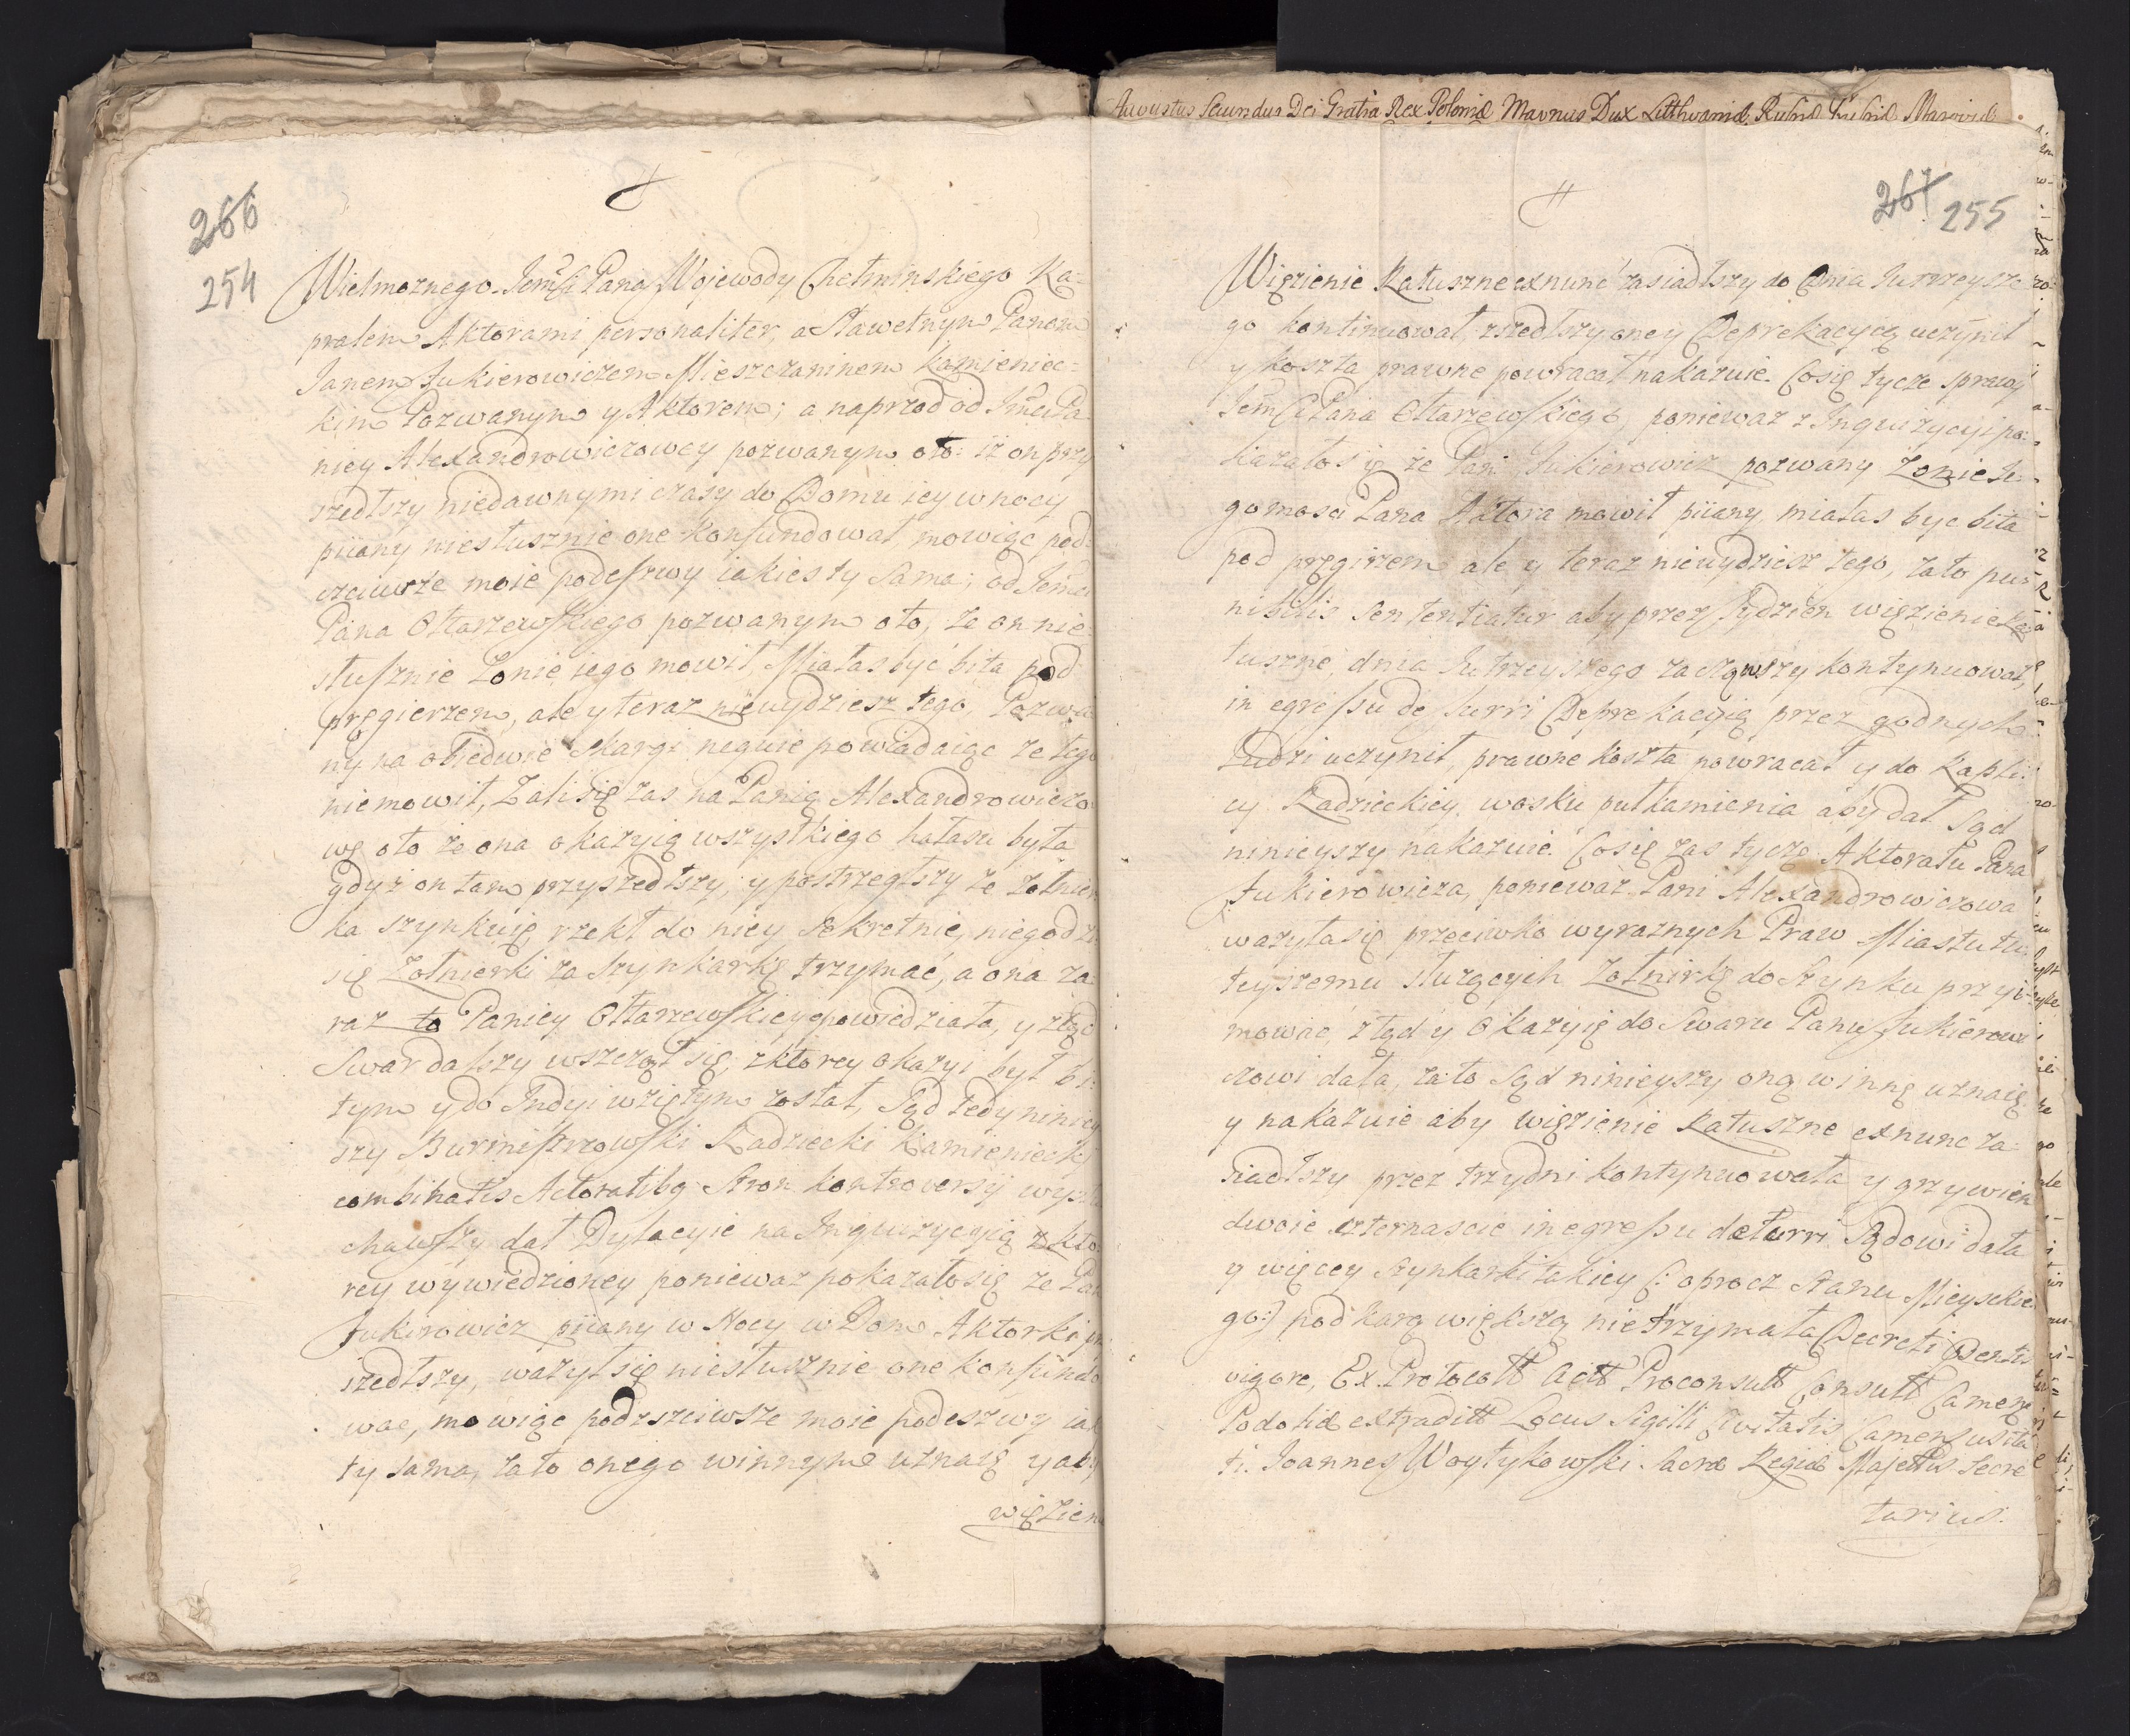 266
254
Wielmoznego Jemści Pana Wojewody Chełminskiego Ka-
pralem Aktorami personaliter a Sławetnym Panem
Janem Jukierowiczem Mieszczaninem Kamieniec-
kim Pozwanym y Aktorem; a naprzod od Jmci Pa
niey Alexandrowiczowey pozwanym oto: iż on przy
szedłszy niedawnymi czasy do Domu iey w nocy
piiany niesłusznie one konfundował, mowiąc pod-
czciwsze moie podeszwy iakies ty sama; od Jemci
Pana Ołtarzewskiego pozwanym oto, ze on nie-
słusznie Zonie iego mowił, Miałas być bita pod
pręgierzem, ale y teraz nieuydziesz tego, Pozwa
ny na obiedwie skargi neguie powiadaiąc ze tego
niemowił, Zali się zas na Panią Alexandrowiczo
wę oto że ona okazyią wszystkiego hałasu była
gdyż on tam przyszedłszy, y postrzegłszy ze zołnier
ka szynkuię rzekł do niey sekretnie, niegodzi
się Zołnierki za szynkarkę trzymać, a ona za-
raz to Paniey Ołtarzewskiey opowiedziała, y ztąd
Swar dalszy wszczął się, z ktorey okazyi był bi-
tym y do Indyi wziętym został, Sąd tedy niniey
szy Burmistrzowski Radziecki Kamieniecki
combinatis Actoratibq Stron kontroversij wysłu
chawszy dał Dylacyie na Inquizycyią z kto-
rey wywiedzioney poniewaz pokazało się ze Pan
Jukirowicz piiany w Nocy w Dom Aktorki prz
szedłszy, wazył się niesłusznie one konfundo
wac, mowiąc podzsciwsze moie podeszwy iak
ty sama, zato onego winnym uznaię y aby
więzien
Augustus Secundus Dei Gratia Rex Poloniæ Magnus Dux Litthvaniæ Rusiæ Prusiæ Masoviæ
267
255
Więzienie Ratuszne exnunc zasiadłszy do Dnia Jutrzeysze
go kontinuował, zszedłszy oney Deprekacyią uczynił
y koszta prawne powracał nakazuie. Co się tycze sprawy
Jemści Pana Ołtarzewskiego, poniewaz z Inquizycyi po-
kazało się że Pan Jukierowicz pozwany Zonie Je-
gomosci Pana Aktora mowił piiany miałas byc bita
pod pręgirzem ale y teraz nieuydziesz tego, zato pu-
nibilis sententiatur aby przez Tydzien więzienie Ra
tuszne, dnia Jutrzeyszego zacząwszy kontynuował,
in egressu de turri Deprekacyią przez godnych
Ludzi uczynił, prawne koszta powracał y do Kapli-
cy Radzieckiey wosku pułkamienia aby dał Sąd
ninieyszy nakazuie. Co się zas tycze Aktoratu Pana
Jukierowicza, poniewaz Pani Alexandrowiczowa
wazyła się przeciwko wyraznych Praw Miastu tu-
teyszemu sluzących Zołnirkę do Szynku przyi-
mowac, ztąd y Okazyią do Swaru Panu Jukierowi
czowi dała, zato Sąd ninieyszy oną winnę uznaię
y nakazuie aby więzienie Ratuszne exnunc za-
siadłszy przez trzy dni kontynuowała y grzywien
dwoie czternascie in egressu de turri Sądowi dała
y więcey Szynkarki takiey (: oprocz Stanu Mieyskie
go:) pod karą większą nie trzymała Decreti Sentis
vigore, Ex Protocoll Actt Proconsull Consull Camen
Podoliæ extraditt Locus Sigilli Civitatis Camen usita
ti. Joannes Woytykowski Sacræ Regiæ Majettis Secre
tarius.